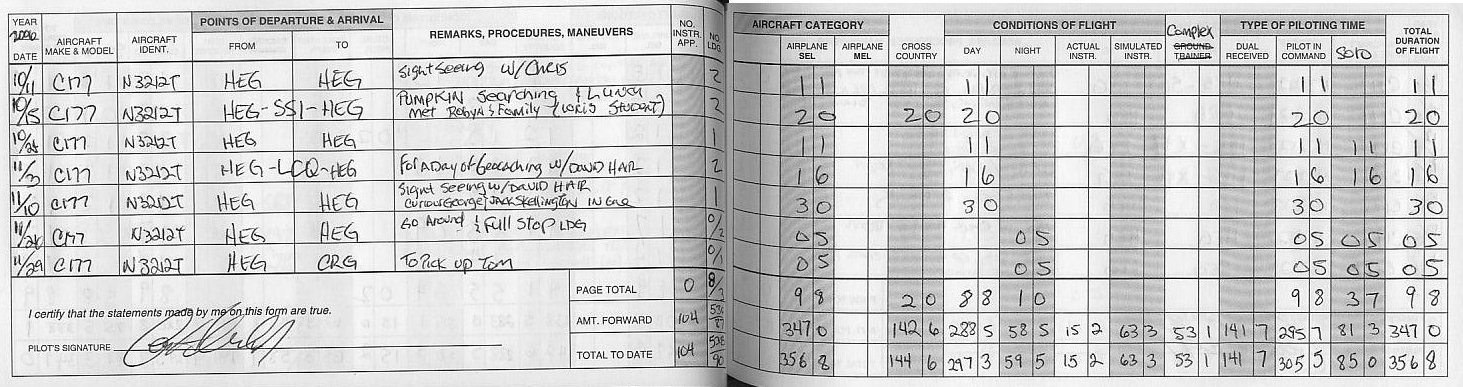 YEAR 2006 DATE AIRCRAFT MAKE & MODEL AIRCRAFT IDENT. POINTS OF DEPARTURE & ARRIVAL FROM TO REMARKS, PROCEDURES, MANEUVERS NO. INSTR. APP. NO. LDG. AIRCRAFT CATEGORY AIRPLANE SEL AIRPLANE MEL CROSS COUNTRY CONDITIONS OF FLIGHT DAY NIGHT ACTUAL INSTR. SIMULATED INSTR. Complex GROUND TRAINER TYPE OF PILOTING TIME DUAL RECEIVED PILOT IN COMMAND Solo TOTAL DURATION OF FLIGHT
10/11 C177 N3212T HEG HEG Sight Seeing w/ Chris 2 1 1 1 1 1 1 1 1
10/15 C177 N3212T HEG-SSI-HEG Pumpkin Searching & Lunch 2 2 0 2 0 2 0 2 0 2 0
met Robyn & Family (Loris Student)
10/26 C177 N3212T HEG HEG 1 1 1 1 1 1 1 1 1 1 1
11/3 C177 N3212T HEG-LCQ-HEG For A Day of Geocaching w/ David HAIR 2 1 6 1 6 1 6 1 6 1 6
11/10 C177 N3212T HEG HEG Signt Seeing w/ DAVID HAIR 1 3 0 3 0 3 0 3 0
Curious George, Jack Skellington
11/26 C177 N3212T HEG HEG Go Around & Full Stop LDG 0/2 0 5 0 5 0 5 0 5 0 5
11/29 C177 N3212T HEG CRG To Pick up Tom 0/1 0 5 0 5 0 5 0 5 0 5
PAGE TOTAL 0 8/3 9 8 2 0 8 8 1 0 9 8 3 7 9 8
I certify that the statements made by me on this form are true.
AMT. FORWARD 104 530/87 347 0 142 6 288 5 58 5 15 2 63 3 53 1 141 7 295 7 81 3 347 0
PILOT'S SIGNATURE
TOTAL TO DATE 104 538/90 356 8 144 6 297 3 59 5 15 2 63 3 53 1 141 7 305 5 85 0 356 8